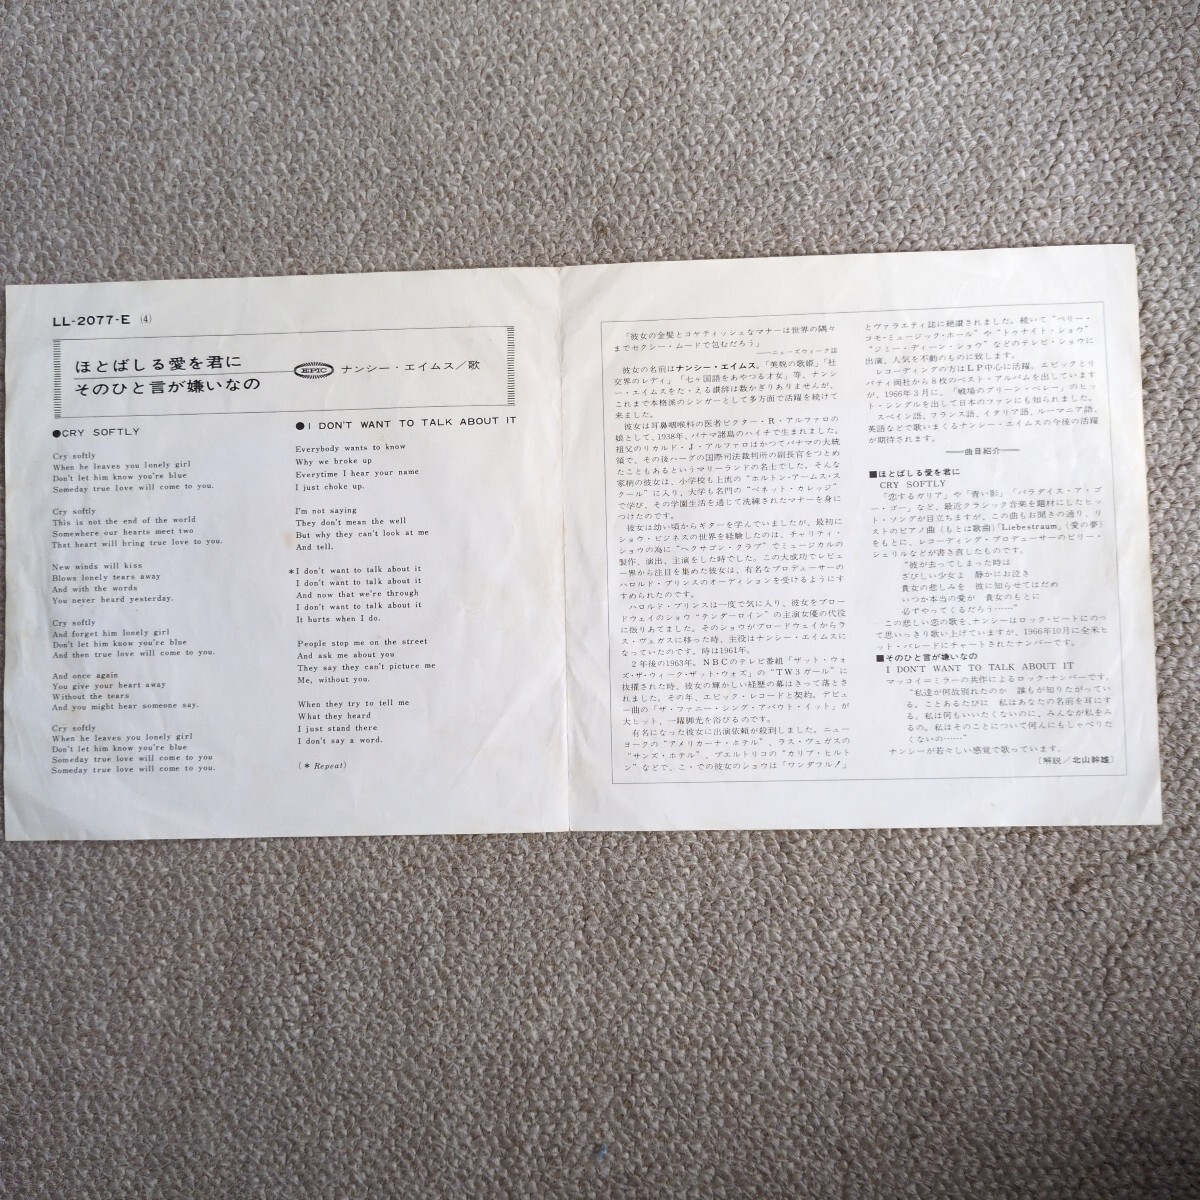 LL-2077-E (4)
ほとばしる愛を君に
そのひと言が嫌いなの
EPIC
ナンシー・エイムス/歌
●CRY SOFTLY
Cry softly
When he leaves you lonely girl
Don't let him know you're blue
Someday true love will come to you.
Cry softly
This is not the end of the world
Somewhere our hearts meet two
That heart will bring true love to you.
New winds will kiss
Blows lonely tears away
And with the words
You never heard yesterday.
Cry softly
And forget him lonely girl
Don't let him know you're blue
And then true love will come to you.
And once again
You give your heart away
Without the tears
And you might hear someone say.
Cry softly
When he leaves you lonely girl
Don't let him know you're blue
Someday true love will come to you
Someday true love will come to you.
●I DON'T WANT TO TALK ABOUT IT
Everybody wants to know
Why we broke up
Everytime I hear your name
I just choke up.
I'm not saying
They don't mean the well
But why they can't look at me
And tell.
*I don't want to talk about it
I don't want to talk about it
And now that we're through
I don't want to talk about it
It hurts when I do.
People stop me on the street
And ask me about you
They say they can't picture me
Me, without you.
When they try to tell me
What they heard
I just stand there
I don't say a word.
(* Repeat)
「彼女の金髪とコケティッシュなマナーは世界の隅々
までセクシー・ムードで包むだろう」
——ニューズウィーク誌
彼女の名前はナンシー・エイムス。「美貌の歌姫」「社
交界のレディ」「七ヶ国語をあやつる才女」等、ナンシ
ー・エイムスをたゝえる讃辞は数かぎりありませんが、
これまで本格派のシンガーとして多方面で活躍を続けて
来ました。
彼女は耳鼻咽喉科の医者ビクター・R・アルファロの
娘として、1938年、パナマ諸島のハイチで生まれました。
祖父のリカルド・J・アルファロはかつてパナマの大統
領で、その後ハーグの国際司法裁判所の副長官をつとめ
たこともあるというマリーランドの名士でした。そんな
家柄の彼女は、小学校も上流の“ホルトン・アームス・ス
クール”に入り、大学も名門の“ベネット・カレッジ”
で学び、その学園生活を通じて洗練されたマナーを身に
つけたのです。
彼女は幼い頃からギターを学んでいましたが、最初に
ショウ・ビジネスの世界を経験したのは、チャリティ・
ショウの為に“ヘクサゴン・クラブ”でミュージカルの
製作、演出、主演をした時でした。この大成功でレビュ
ー界から注目を集めた彼女は、有名なプロデューサーの
ハロルド・プリンスのオーディションを受けるようにす
すめられたのです。
ハロルド・プリンスは一度で気に入り、彼女をブロー
ドウェイのショウ“テンダーロイン”の主演女優の代役
に振りあてました。そのショウがブロードウェイからラ
ス・ヴェガスに移った時、主役はナンシー・エイムスに
なっていたのです。時は1961年。
2年後の1963年、NBCのテレビ番組「ザット・ウォ
ズ・ザ・ウィーク・ザット・ウォズ」の“TW3ガール”に
抜擢された時、彼女の輝かしい経歴の幕はきって落とさ
れました。その年、エピック・レコードと契約。デビュ
ー曲の「ザ・ファニー・シング・アバウト・イット」が
大ヒット、一躍脚光を浴びるのです。
有名になった彼女に出演依頼が殺到しました。ニュー
ヨークの“アメリカーナ・ホテル”、ラス・ヴェガスの
“サンズ・ホテル”、プエルトリコの“カリブ・ヒルト
ン”などで、こゝでの彼女のショウは「ワンダフル!」
とヴァラエティ誌に絶讃されました。続いて“ペリー・
コモ・ミュージック・ホール”や“トゥナイト・ショウ”
“ジミー・ディーン・ショウ”などのテレビ・ショウに
出演。人気を不動のものに致します。
レコーディングの方はLP中心に活躍。エピックとリ
バティ両社から8枚のベスト・アルバムを出しています
が、1966年3月に、「戦場のグリーン・ベレー」のヒッ
ト・シングルを出して日本のファンにも知られました。
スペイン語、フランス語、イタリア語、ルーマニア語、
英語などで歌いまくるナンシー・エイムスの今後の活躍
が期待されます。
——曲目紹介——
■ほとばしる愛を君に
CRY SOFTLY
「恋するガリア」や「青い影」「パラダイス・ア・ゴ
ー・ゴー」など、最近クラシック音楽を題材にしたヒッ
ト・ソングが目立ちますが、この曲もお聞きの通り、リ
ストのピアノ曲(もとは歌曲)「Liebestraum」(愛の夢)
をもとに、レコーディング・プロデューサーのビリー・
シェリルなどが書き直したものです。
“彼が去ってしまった時は
さびしい少女よ 静かにお泣き
貴女の悲しみを 彼に知らせてはだめ
いつか本当の愛が 貴女のもとに
必ずやってくるだろう……”
この悲しい恋の歌を、ナンシーはロック・ビートにのっ
て思いっきり歌い上げていますが、1966年10月に全米ヒ
ット・パレードにチャートされたナンバーです。
■そのひと言が嫌いなの
I DON'T WANT TO TALK ABOUT IT
マッコイ=ミラーの共作によるロック・ナンバーです。
“私達が何故別れたのか 誰もが知りたがってい
る。ことあるたびに 私はあなたの名前を耳にす
る。私は何もいいたくないのに、みんなが私をみ
るの。私はそのことについて何んにもしゃべりた
くないの……”
ナンシーが若々しい感覚で歌っています。
〔解説/北山幹雄〕